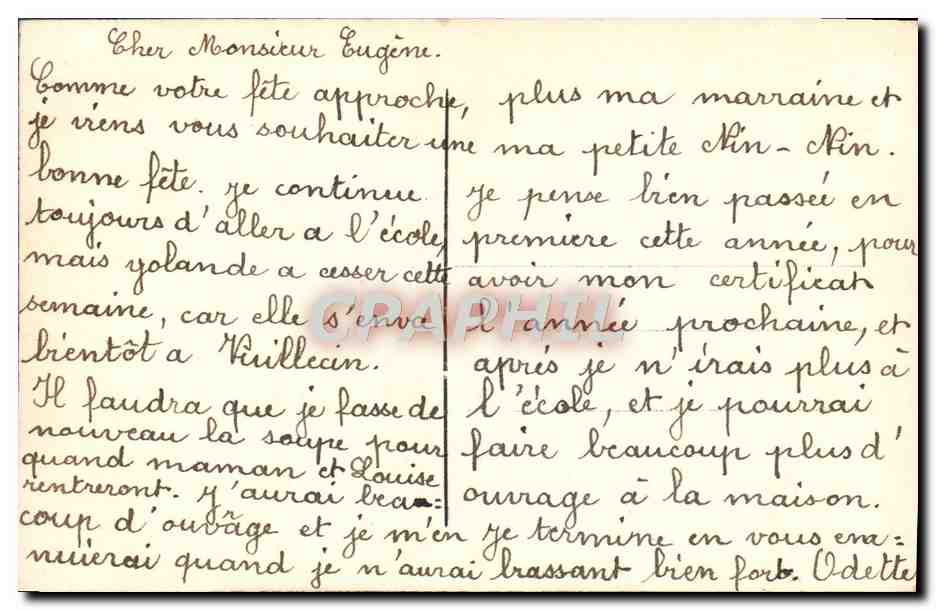 Cher Monsieur Eugène.
Comme votre fête approche,
je viens vous souhaiter une
bonne fête. Je continue
toujours d'aller a l'école,
mais yolande a cesser cette
semaine, car elle s'enva
bientôt a Vuillecin.
Il faudra que je fasse de
nouveau la soupe pour
quand maman et Louise
rentreront. J'aurai beau=
coup d'ouvrage et je m'en
nuierai quand je n'aurai
plus ma marraine et
ma petite Nin-Nin.
Je pense bien passée en
première cette année, pour
avoir mon certificat
l'année prochaine, et
après je n'irais plus à
l'école, et je pourrai
faire beaucoup plus d'
ouvrage à la maison.
Je termine en vous em=
brassant bien fort. Odette
CPAPHIL